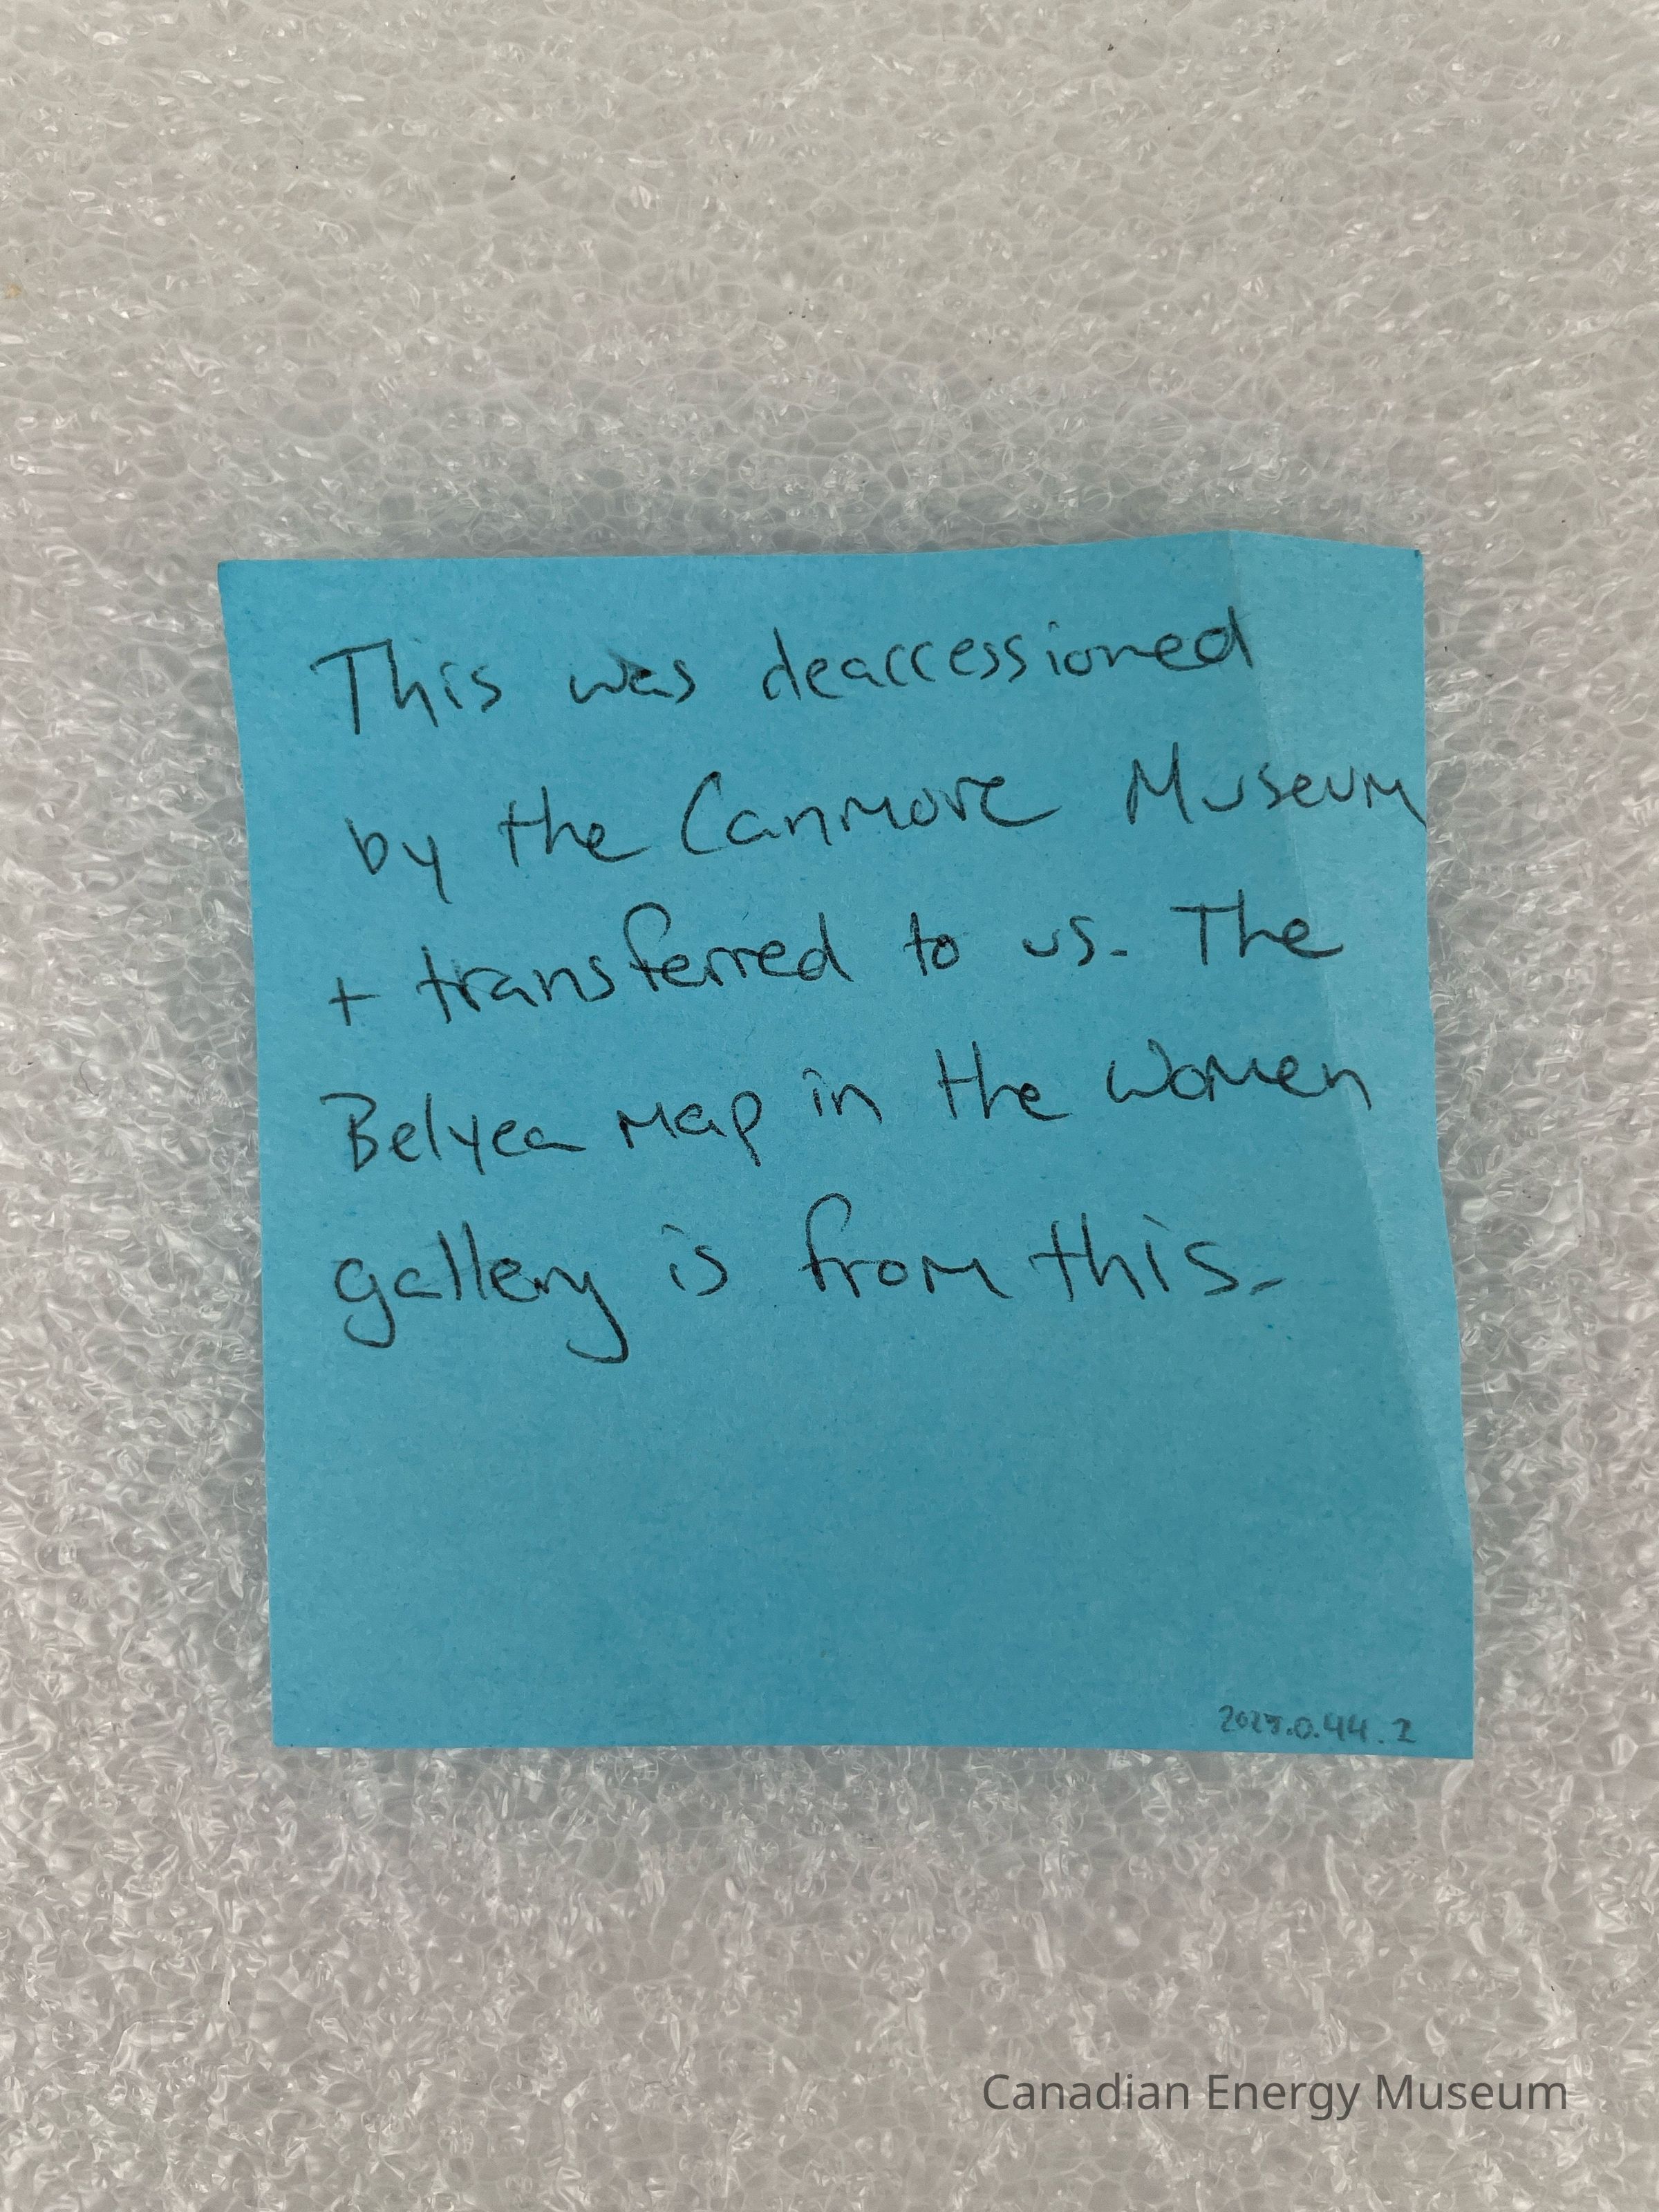 This was deaccessioned
by the Canmore Museum
+ transferred to us. The
Belyea map in the Women
gallery is from this.
2025.0.44.2
Canadian Energy Museum